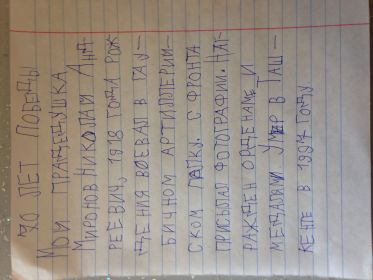 70 ЛЕТ ПОБЕДЫ
МОЙ ПРАДЕДУШКА
МИРОНОВ НИКОЛАЙ АНД-
РЕЕВИЧ, 1918 ГОДА РОЖ
ДЕНИЯ ВОЕВАЛ В ГАУ-
БИЧНОМ АРТИЛЛЕРИЙ-
СКОМ ПОЛКУ. С ФРОНТА
ПРИСЫЛАЛ ФОТОГРАФИИ. НАГ-
РАЖДЕН ОРДЕНАМЕ И
МЕДАЛЯМИ УМЕР В ТАШ-
КЕНТЕ В 1997 ГОДУ